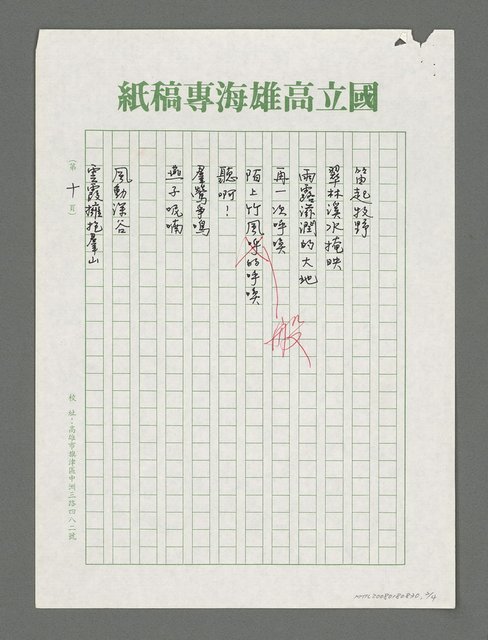 國立高雄海專稿紙
笛起牧野
翠林溪水掩映
雨露滋潤的大地
再一次呼喚
陌上竹風呼的呼喚
般
聽啊！
群鶯爭鳴
燕子呢喃
風動深谷
雲霞擁抱群山
（第十頁）
校址：高雄市旗津區中洲三路四八二號
NMTL20080180830, 2/4